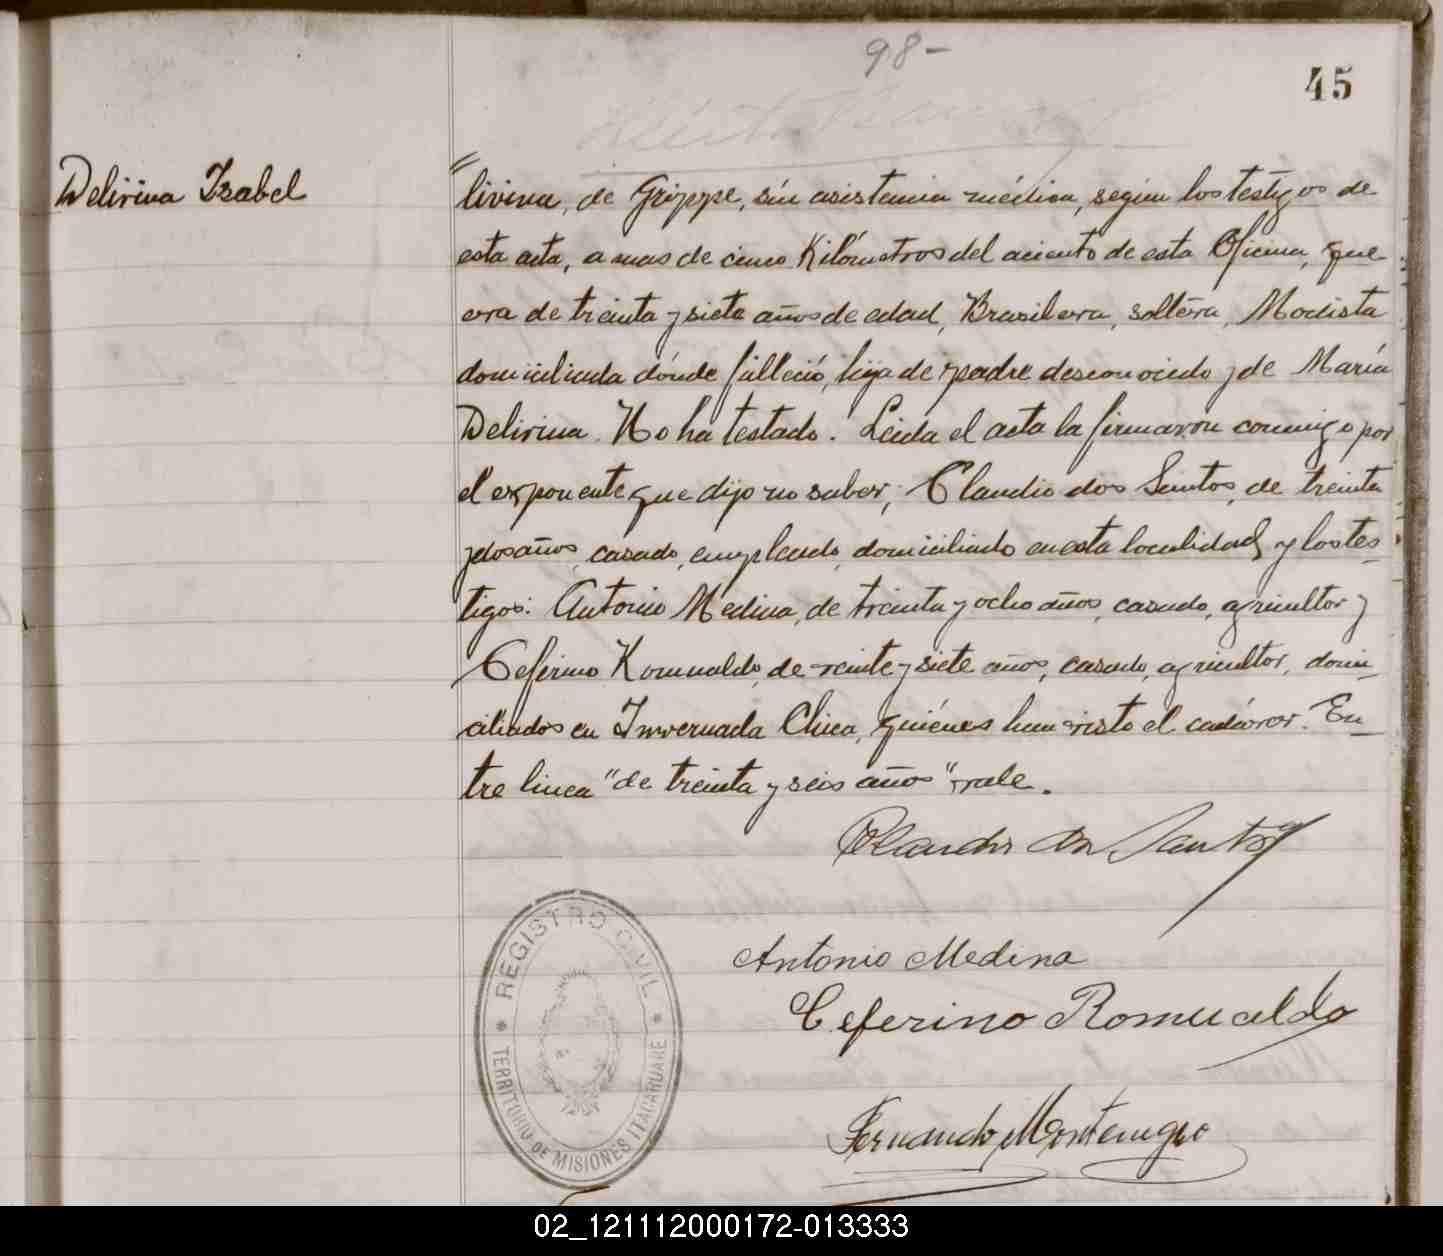 98-
45
Delirina Isabel
lirina, de Grippe, sin asistencia médica, segun los testigos de
esta acta, a mas de cinco Kilómetros del aciento de esta Oficina, que
era de treinta y siete años de edad, Brasilera, soltera, Modista
domiciliada dónde falleció, hija de padre desconocido y de María
Delirina. No ha testado. Leida el acta la firmaron conmigo por
el exponente que dijo no saber, Claudio dos Santos, de treinta
y dos años, casado, empleado, domiciliado en esta localidad, y los tes-
tigos: Antonio Medina, de treinta y ocho años, casado, agricultor y
Ceferino Romualdo, de veinte y siete años, casado, agricultor, domi-
ciliados en Invernada Chica, quiénes han visto el cadáver. En-
tre linea "de treinta y seis años" vale.
Claudio dos Santos
Antonio Medina
Ceferino Romualdo
Fernando Montenegro
REGISTRO CIVIL
TERRITORIO DE MISIONES ITACARUARE
02_121112000172-013333